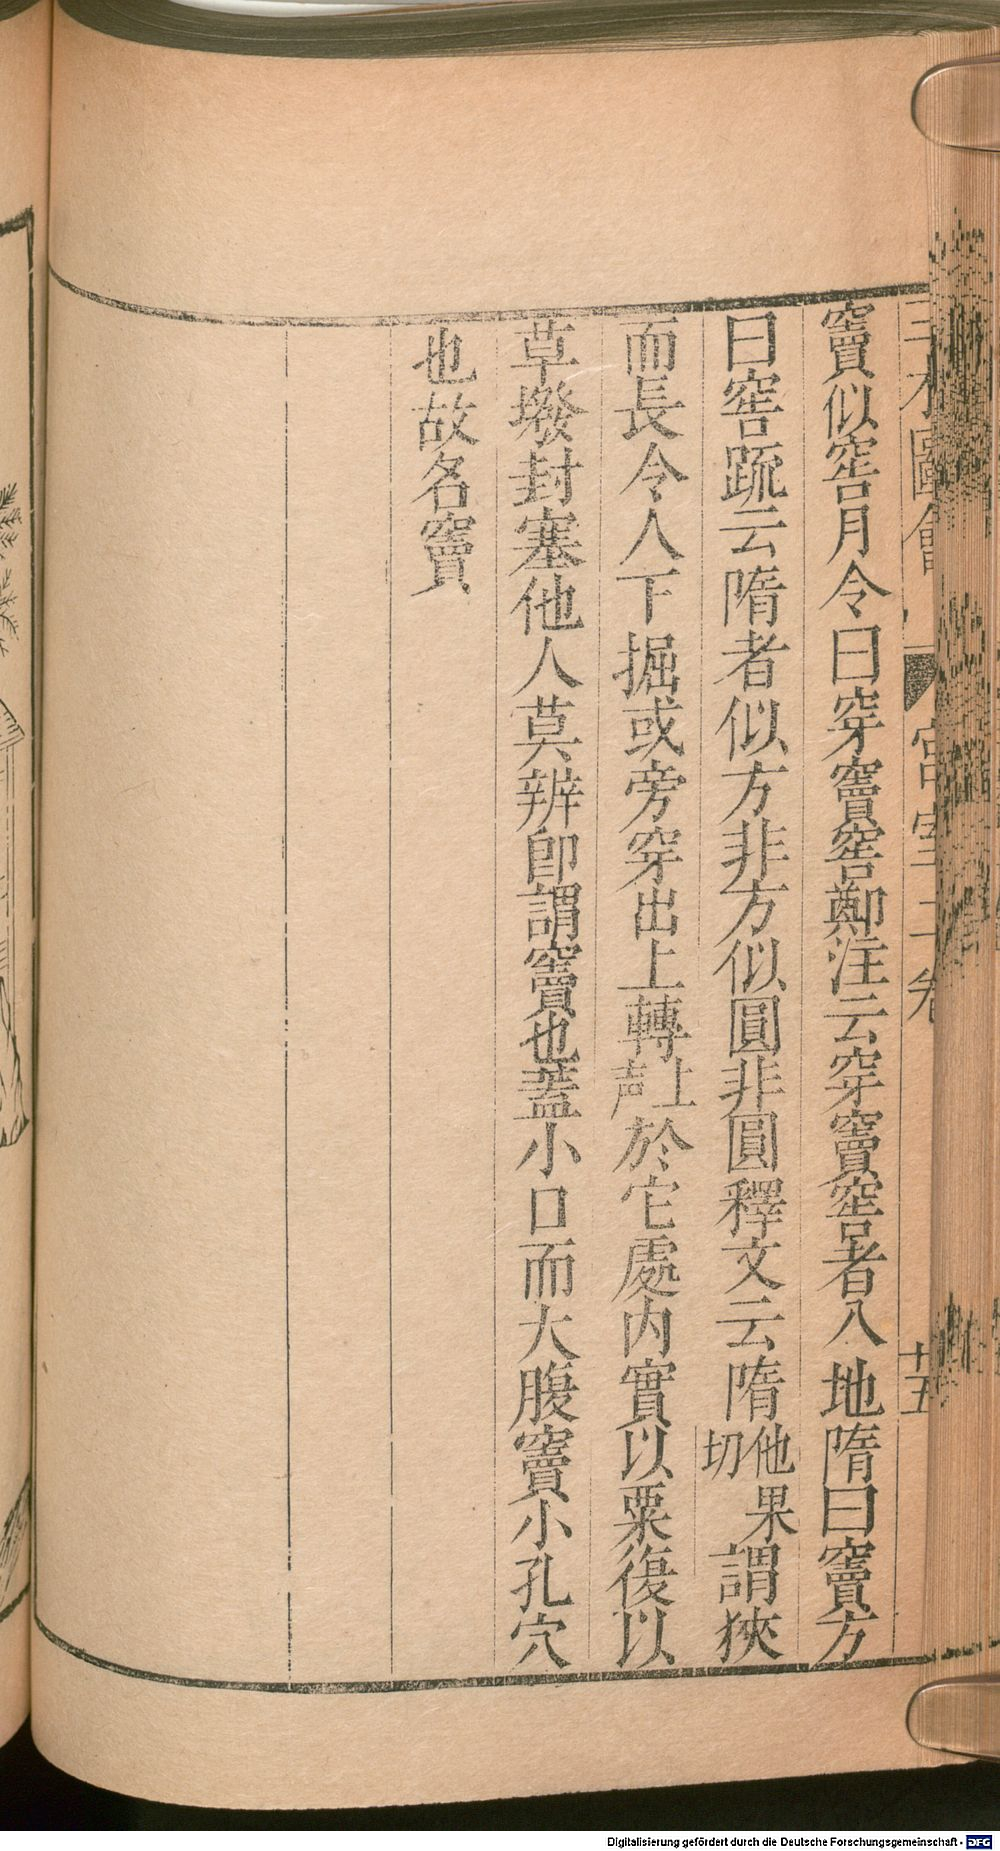 竇似窖月令曰穿竇窖鄭注云穿竇窖者入地隋曰竇方
曰窖疏云隋者似方非方似圓非圓釋文云隋他果切謂狹
而長令人下掘或旁穿出上轉上声於它處内實以粟復以
草墢封塞他人莫辨卽謂竇也蓋小口而大腹竇小孔穴
也故名竇
圖會
宮室二卷
十五
Digitalisierung gefördert durch die Deutsche Forschungsgemeinschaft - DFG